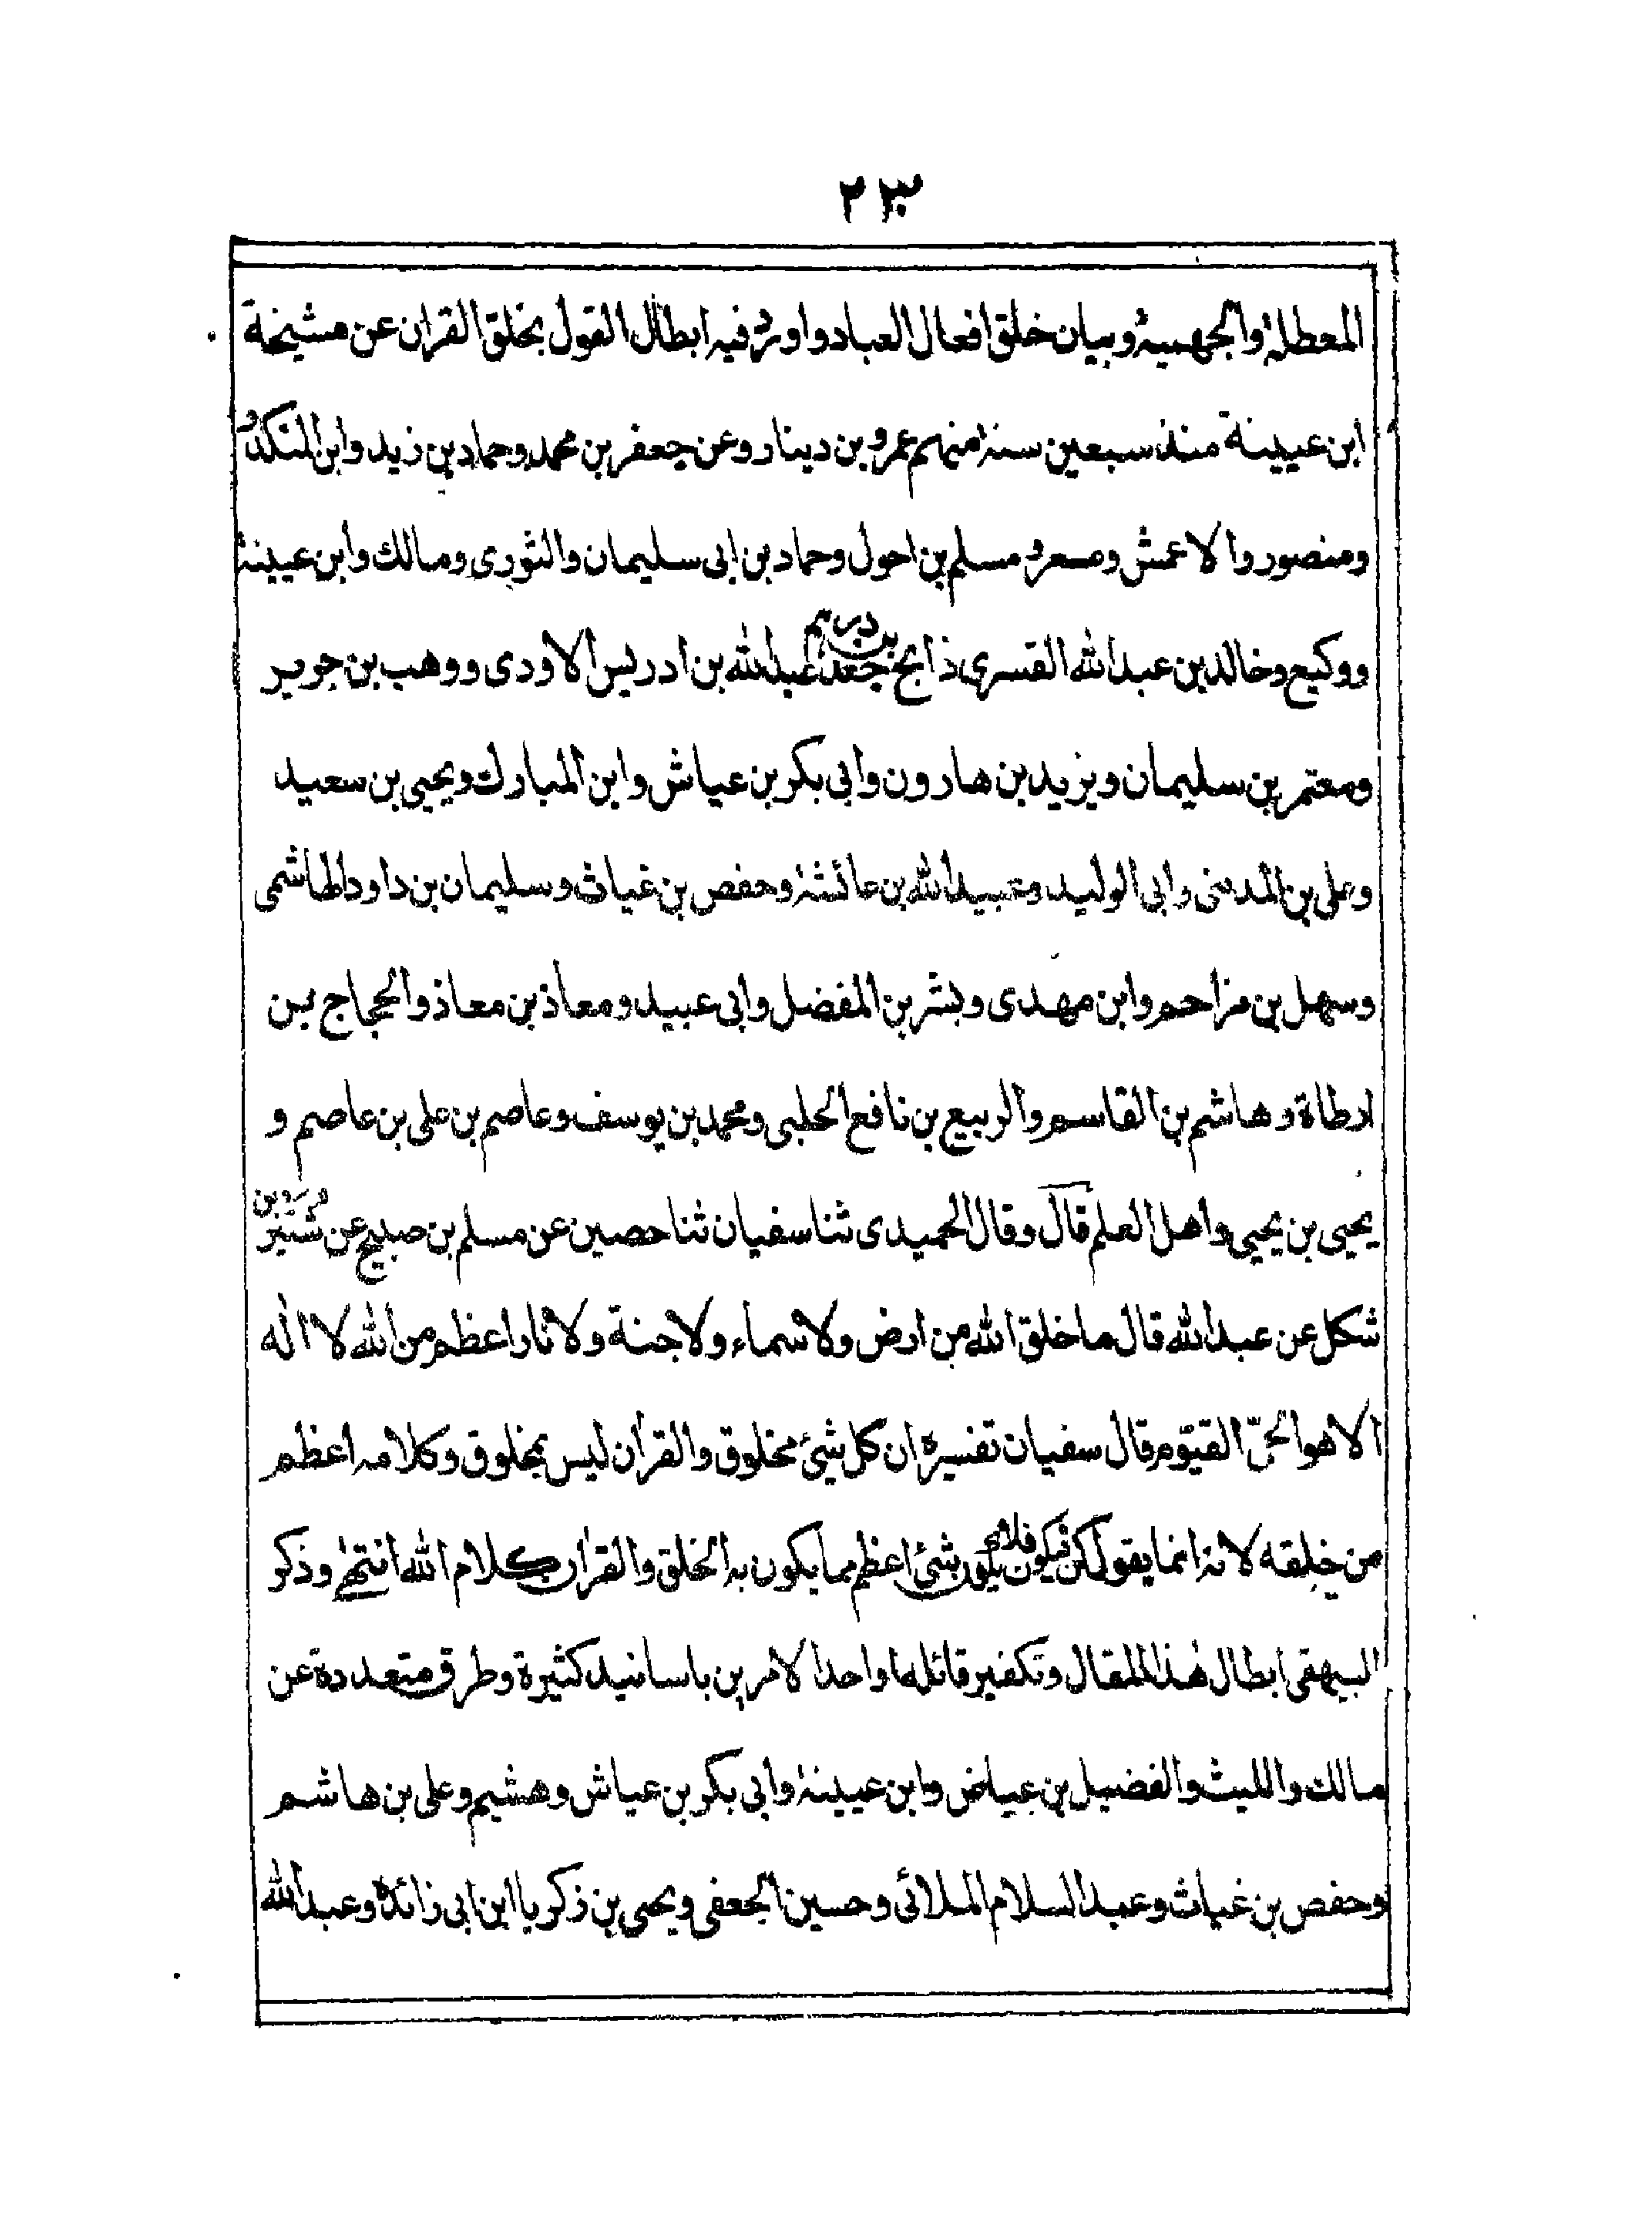 ٢٣
المعطلة والجهمية وبيان خلق افعال العباد واورد فيه ابطال القول بخلق القران عن مشيخة
ابن عيينة منذ سبعين سنة منهم عمرو بن دينار وعن جعفر بن محمد وحماد بن زيد وابن المنكدر
ومنصور والاعمش ومسعر ومسلم بن احول وحماد بن ابى سليمان والثورى ومالك وابن عيينة
ووكيع وخالد بن عبد الله القسرى ذابح جعد بن درهم عبد الله بن ادريس الاودى ووهب بن جرير
ومعتمر بن سليمان ويزيد بن هارون وابى بكر بن عياش وابن المبارك ويحيى بن سعيد
وعلى بن المدينى وابى الوليد وعبيد الله بن عائشة وحفص بن غياث وسليمان بن داود الهاشمى
وسهل بن مزاحم وابن مهدى وبشر بن المفضل وابى عبيد ومعاذ بن معاذ والحجاج بن
ارطاة وهاشم بن القاسم والربيع بن نافع الحلبى ومحمد بن يوسف وعاصم بن على بن عاصم و
يحيى بن يحيى واهل العلم قال وقال الحميدى ثنا سفيان ثنا حصين عن مسلم بن صبيح عن شتير بن
شكل عن عبد الله قال ما خلق الله من ارض ولا سماء ولا جنة ولا نار اعظم من الله لا اله
الا هو الحىّ القيّوم قال سفيان تفسيره ان كل شئ مخلوق والقران ليس بمخلوق وكلامه اعظم
من خلقه لانه انما يقول كن فيكون فلا يكون شئ اعظم مما يكون به الخلق والقران كلام الله انتهى وذكر
البيهقى ابطال هذا المقال وتكفير قائلها واحد الامرين باسانيد كثيرة وطرق متعددة عن
مالك والليث والفضيل بن عياض وابن عيينة وابى بكر بن عياش وهشيم وعلى بن هاشم
وحفص بن غياث وعبد السلام الملائى وحسين الجعفى ويحيى بن زكريا ابن ابى زائدة وعبد الله